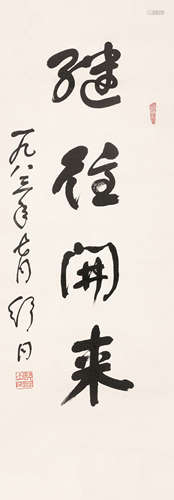 继往开来
一九八三年七月舒同